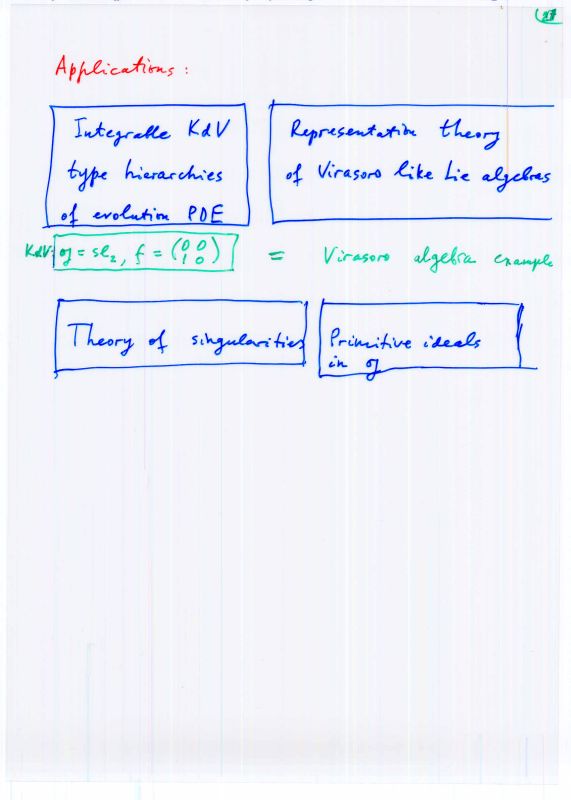 Applications:
Integrable KdV
type hierarchies
of evolution PDE
Representation theory
of Virasoro like Lie algebras
KdV: 𝔤 = sl₂, f = (0 0
1 0)
= Virasoro algebra example
Theory of singularities
Primitive ideals
in 𝔤